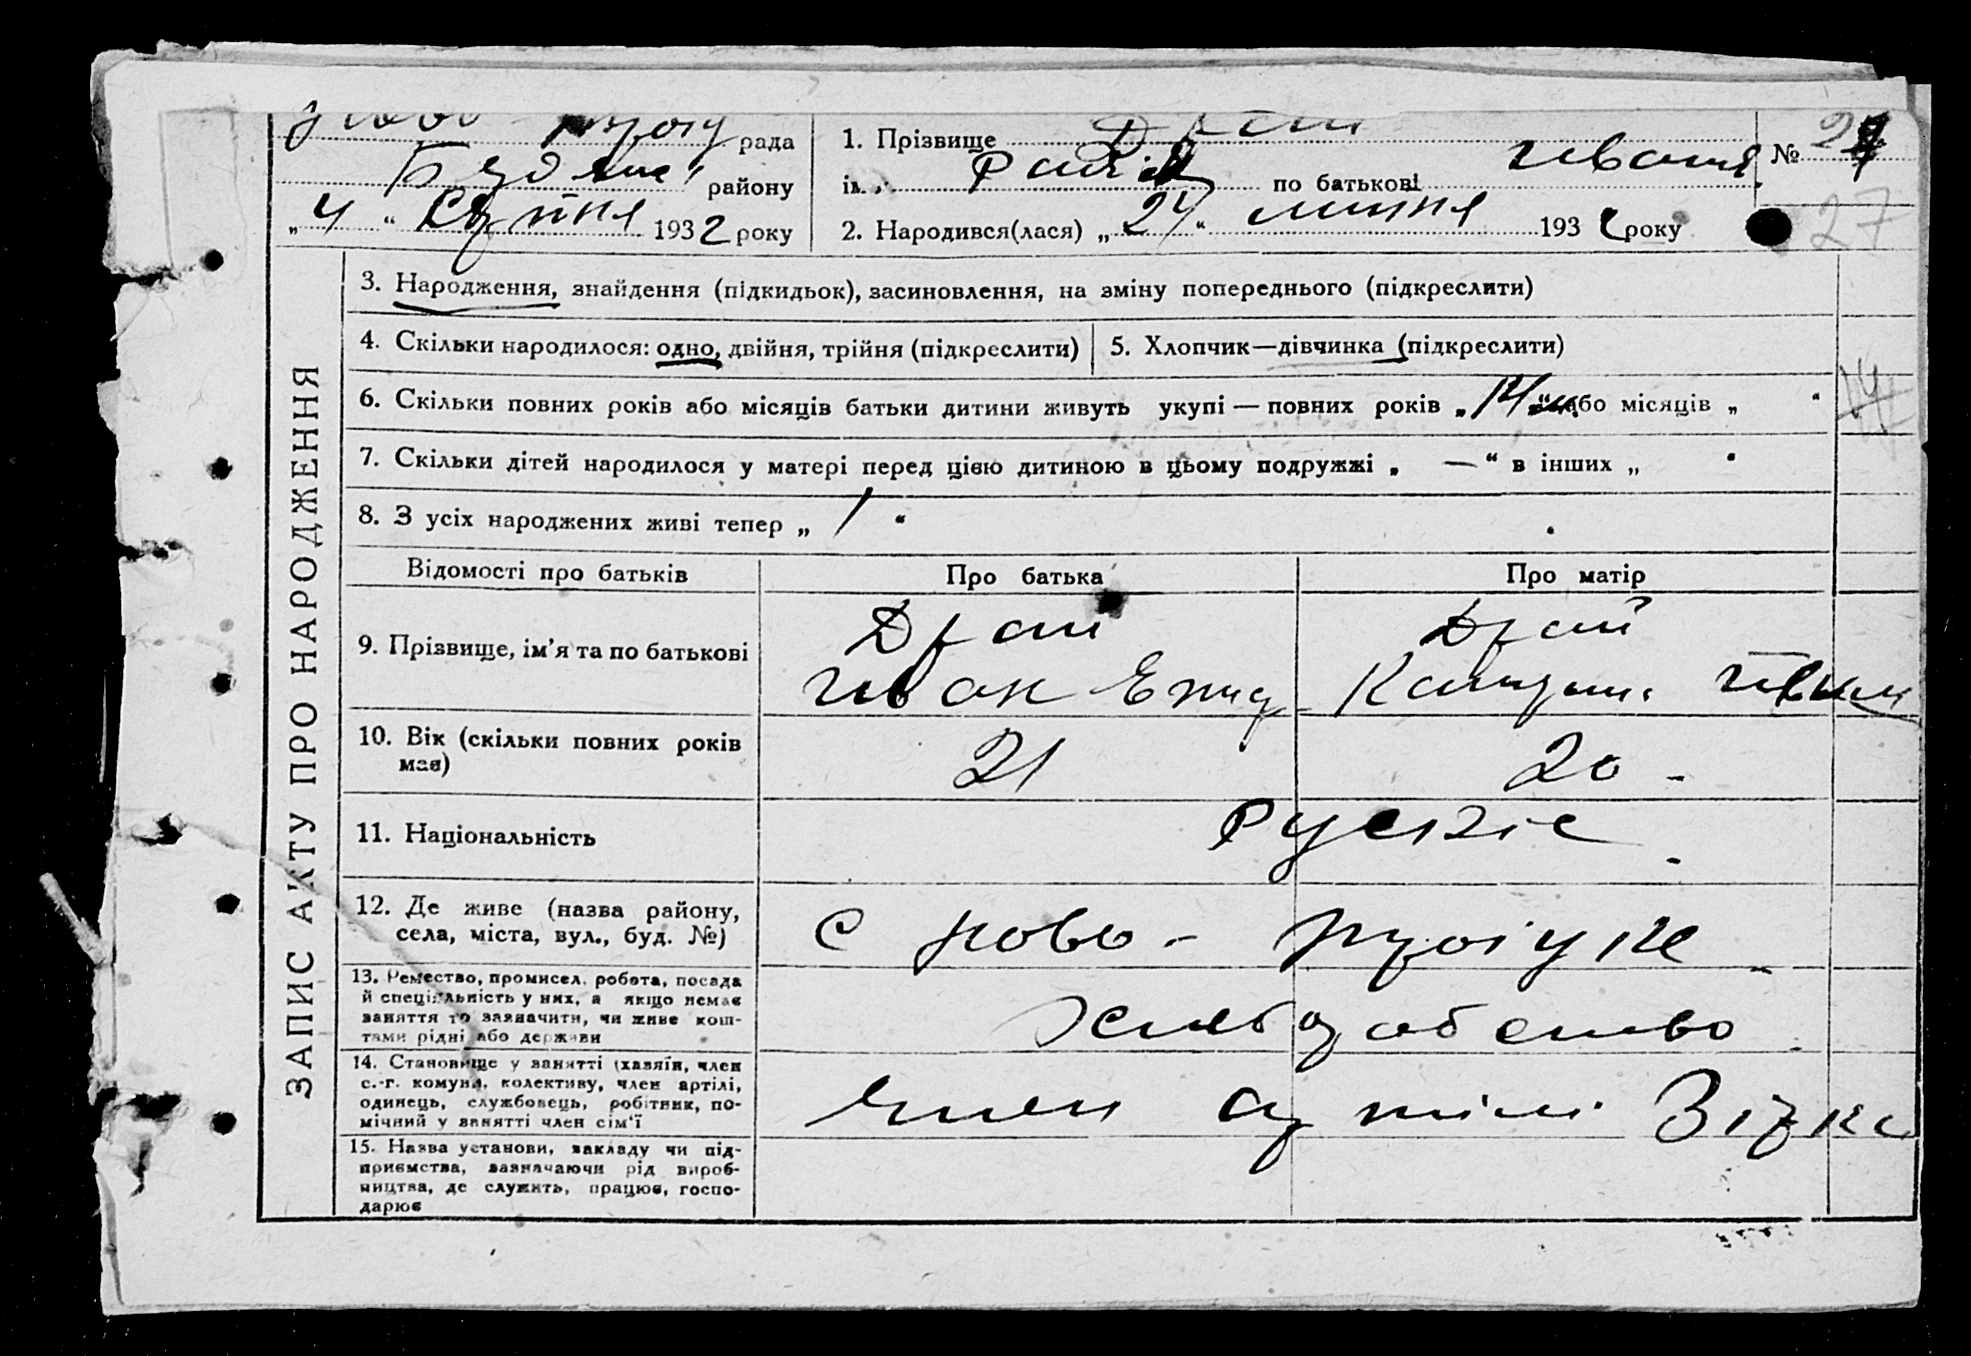 рада
1. Прізвище Драй
№
району
ім'я
по батькові
„ 4 “ Серпня 1932 року
2. Народився(лася) „ 24 “ липня 1932 року
27
ЗАПИС АКТУ ПРО НАРОДЖЕННЯ
3. Народження, знайдення (підкидьок), засиновлення, на зміну попереднього (підкреслити)
4. Скільки народилося: одно, двійня, трійня (підкреслити)
5. Хлопчик—дівчинка (підкреслити)
6. Скільки повних років або місяців батьки дитини живуть укупі — повних років „ “ або місяців „ “
7. Скільки дітей народилося у матері перед цією дитиною в цьому подружжі „ — “ в інших „ “
8. З усіх народжених живі тепер „ 1 “
Відомості про батьків
Про батька
Про матір
9. Прізвище, ім'я та по батькові
Драй
Драй
Иван
10. Вік (скільки повних років
має)
21
20
11. Національність
Рускіе
12. Де живе (назва району,
села, міста, вул., буд. №)
с Ново-
13. Ремество, промисел, робота, посада
й спеціяльність у них, а якщо немає
заняття то зазначити, чи живе кош-
тами рідні або держави
Хлеборобство
14. Становище у занятті (хазяїн, член
с.-г. комуни, колективу, член артілі,
одинець, службовець, робітник, по-
мічний у занятті член сім'ї
член артілі Зірка
15. Назва установи, закладу чи під-
приємства, зазначаючи рід вироб-
ництва, де служить, працює, госпо-
дарює